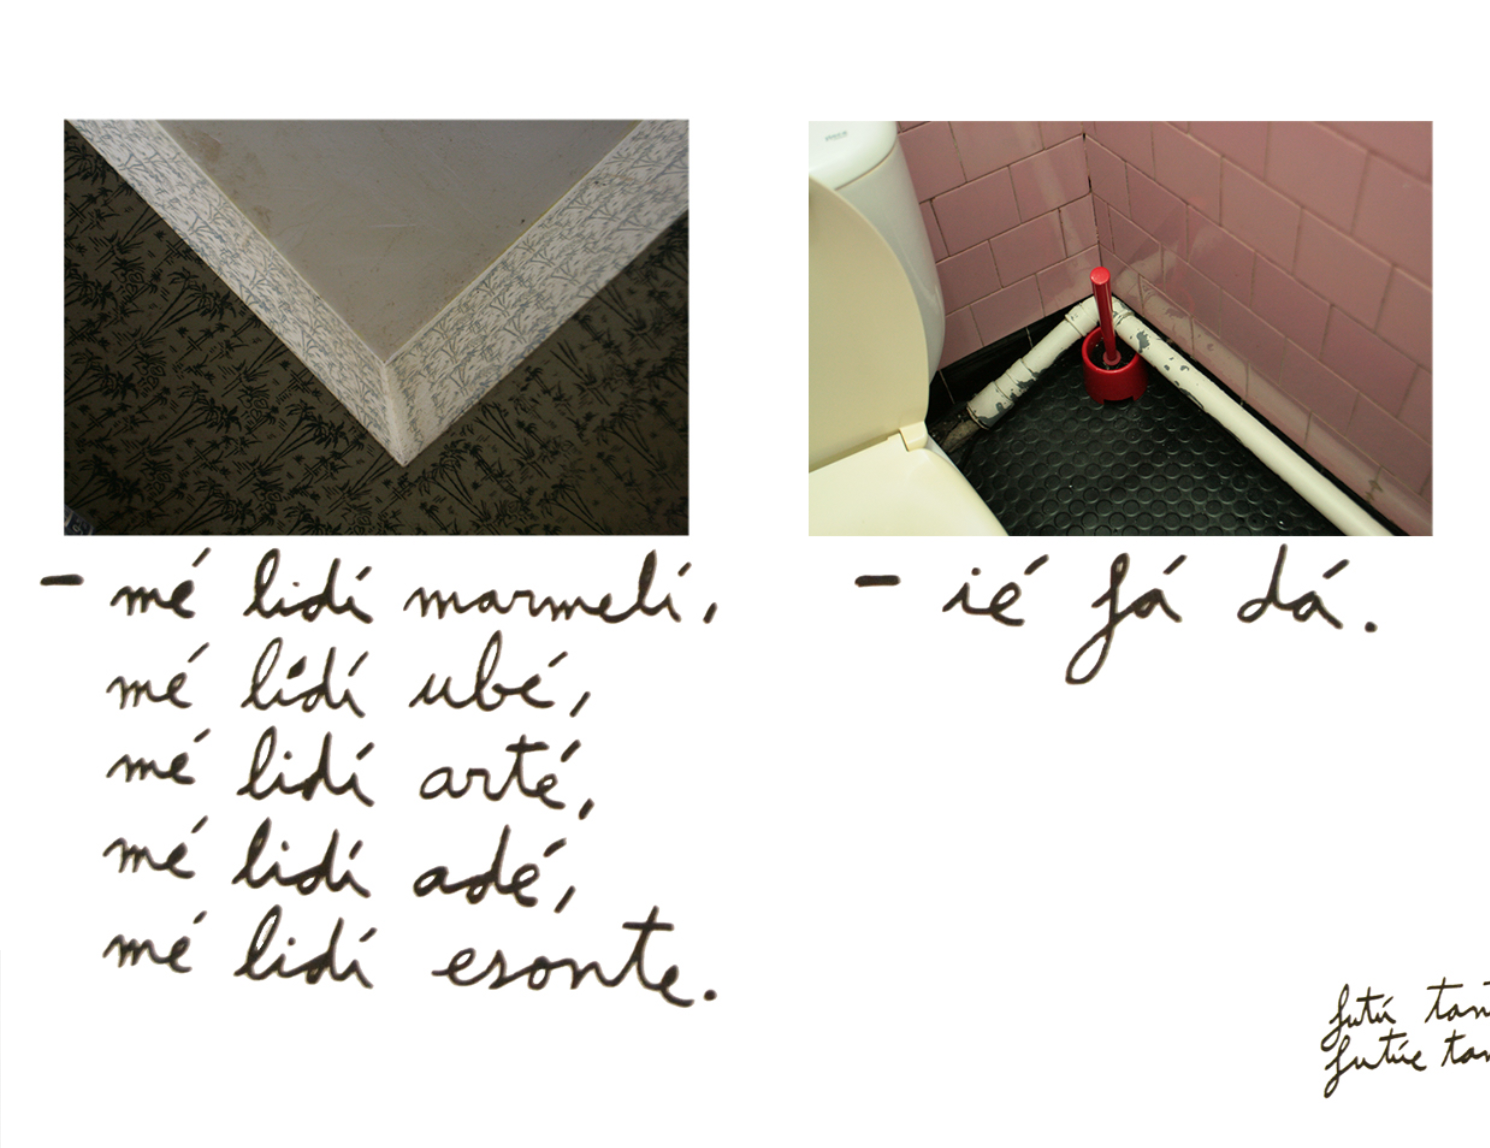 - mé lidí marmelí,
mé lidí ubé,
mé lidí arté,
mé lidí adé,
mé lidí esonte.
- ié fá dá.
futú tan
futúe tan